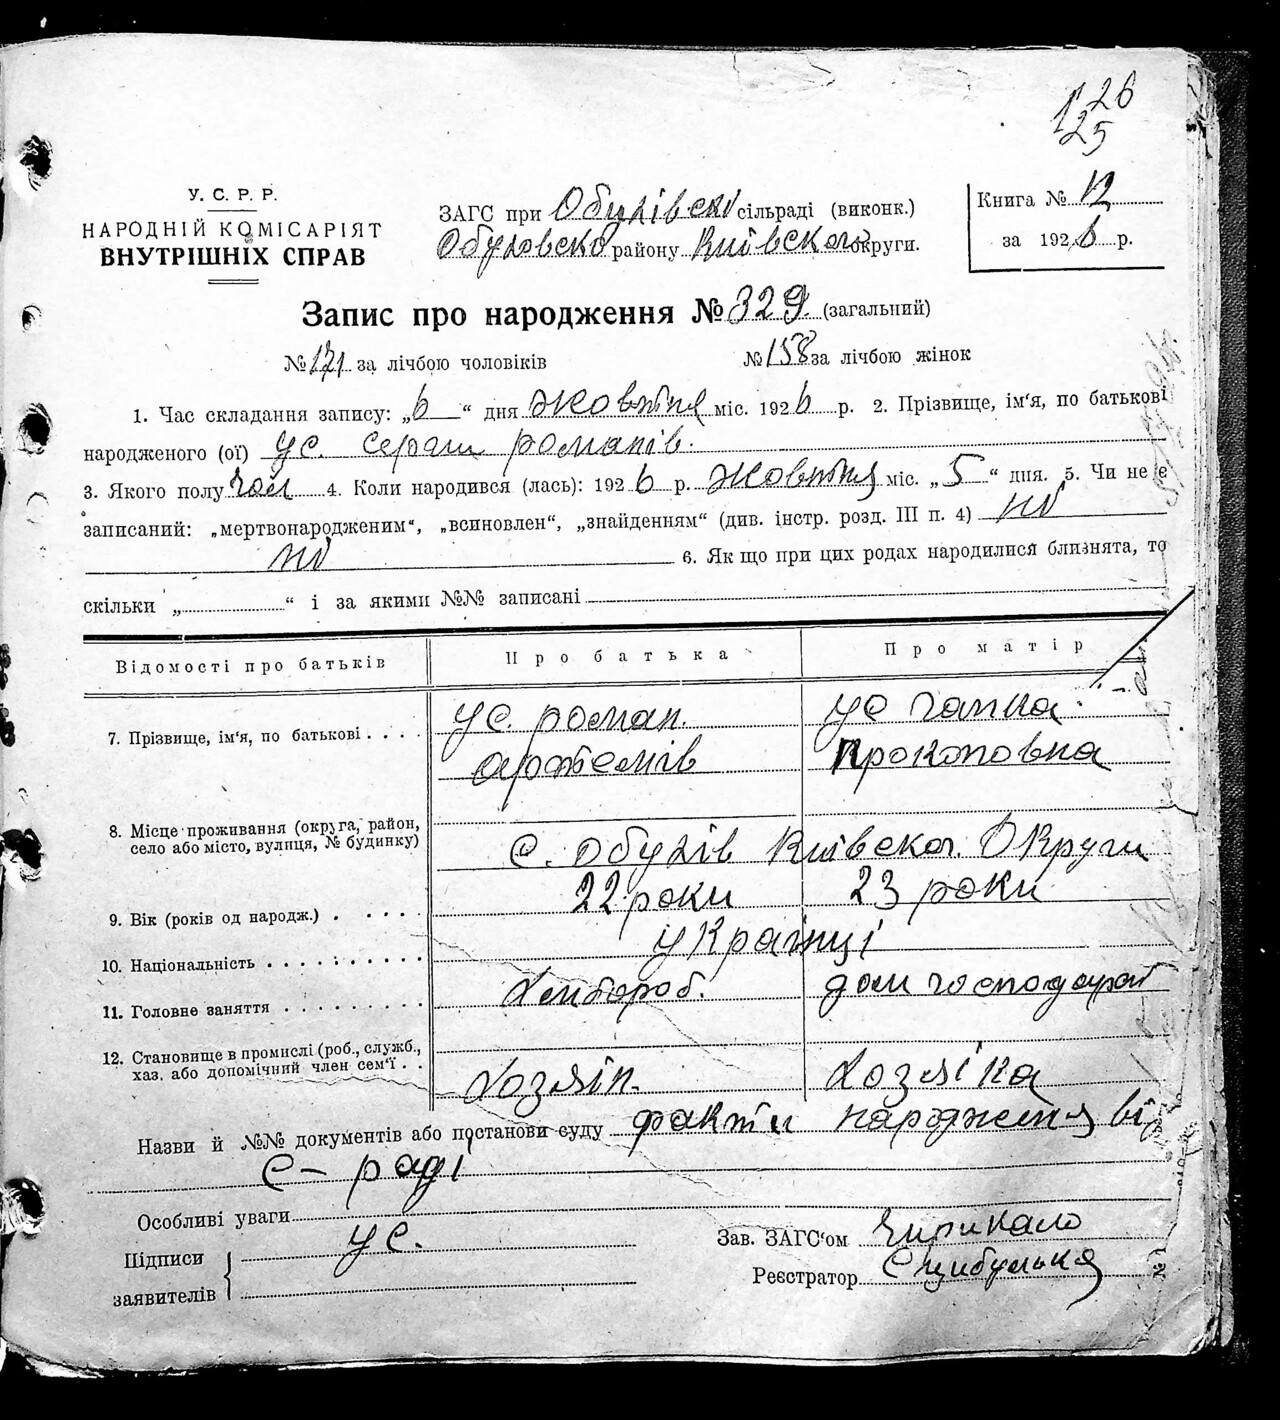 126
125
У. С. Р. Р.
НАРОДНІЙ КОМІСАРІЯТ
ВНУТРІШНІХ СПРАВ
ЗАГС при Обухівскі сільраді (виконк.)
Обуховско району Київского округи.
Книга № 12
за 1926 р.
Запис про народження № 329 (загальний)
№ 171 за лічбою чоловіків № 158 за лічбою жінок
1. Час складання запису: „6“ дня жовтня міс. 1926 р. 2. Прізвище, ім'я, по батькові
народженого (ої) Ус. Сергій Романів.
3. Якого полу чол 4. Коли народився (лась): 1926 р. жовтня міс. „5“ дня. 5. Чи не є
записаний: „мертвонародженим“, „всиновлен“, „знайденням“ (див. інстр. розд. III п. 4) ні
ні 6. Як що при цих родах народилися близнята, то
скільки „ “ і за якими №№ записані
Відомості про батьків Про батька Про матір
7. Прізвище, ім'я, по батькові . . . . Ус. Роман. Ус Ганна
Артемів Прокоповна
8. Місце проживання (округа, район,
село або місто, вулиця, № будинку) С. Обухів Київског. Округи
9. Вік (років од народж.) . . . . . 22 роки 23 роки
10. Національність . . . . . . . . . . Українці
11. Головне заняття . . . . . . . . Хлібороб. дом господарст
12. Становище в промислі (роб., служб.,
хаз. або допомічний член сем'ї . . Хозяін. Хозяіка
Назви й №№ документів або постанови суду факти народження від
С– раді
Особливі уваги
Підписи
заявителів
Ус.
Зав. ЗАГС'ом Чирикало
Реєстратор С Цибулька